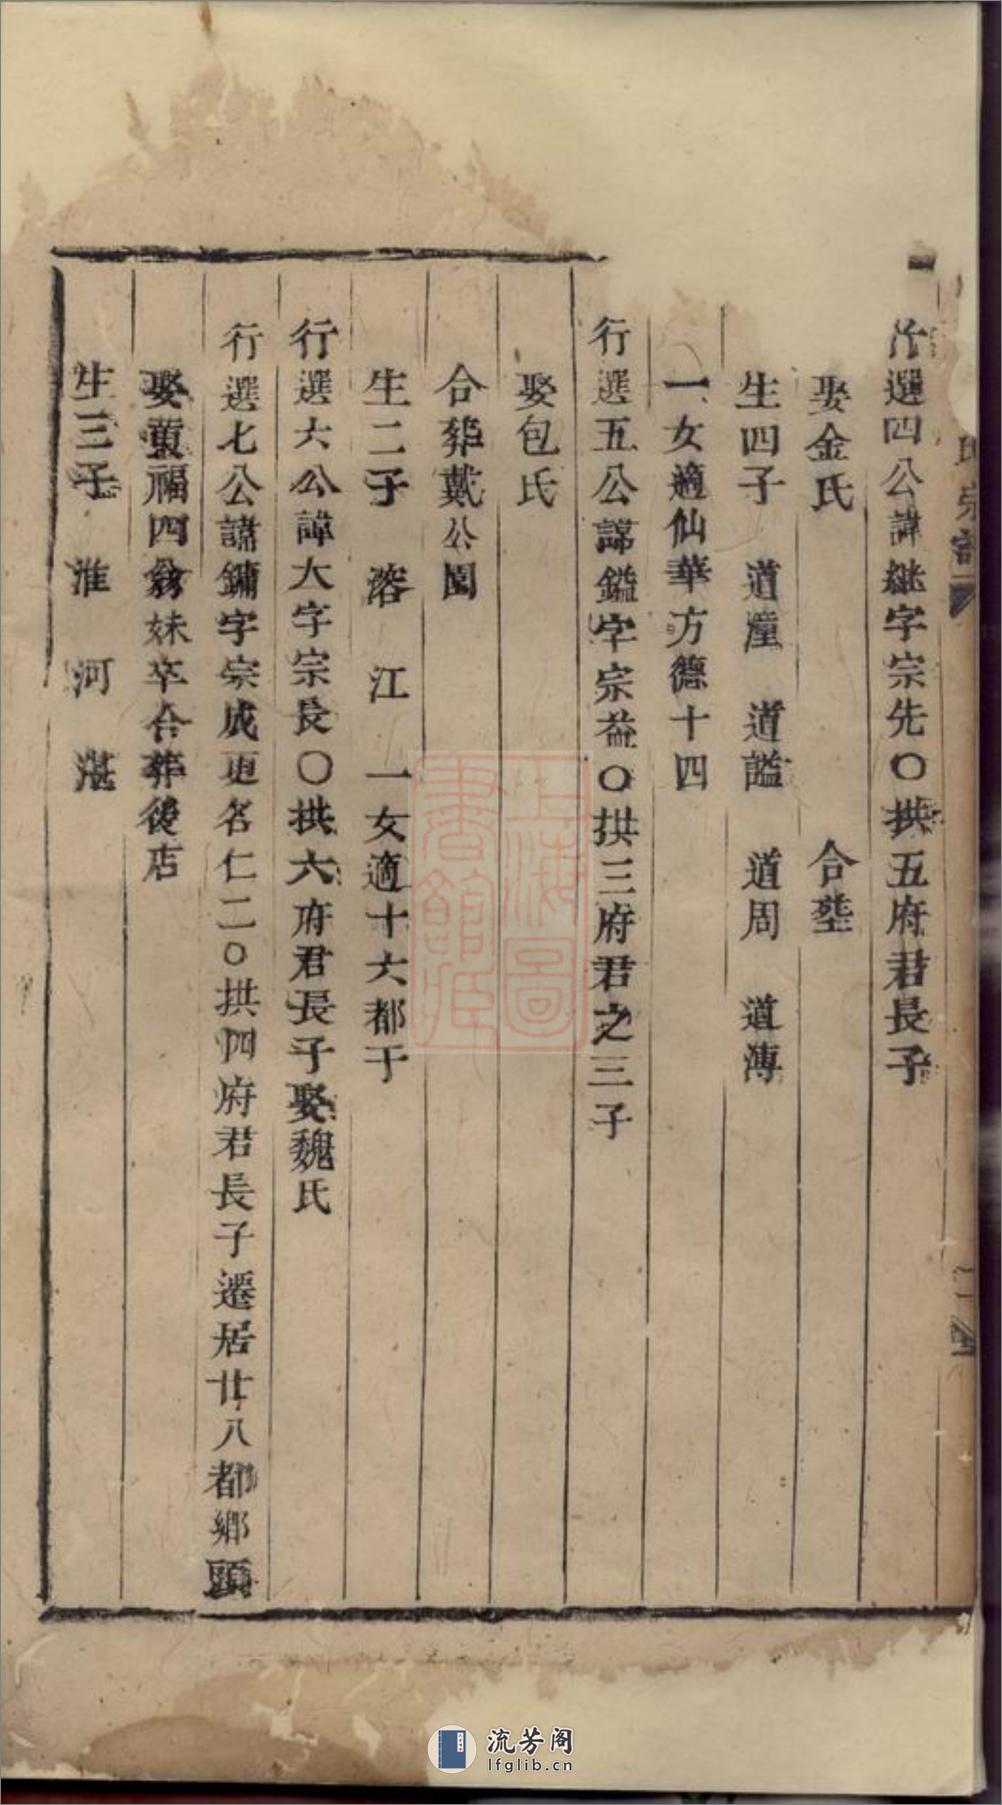 行選四公諱銚字宗先〇拱五府君長子
娶金氏 合塟
生四子 道潼 道謐 道周 道溥
一女適仙華方德十四
行選五公諱鎰字宗益〇拱三府君之三子
娶包氏
合葬戴公園
生二子 溶 江 一女適十六都于
行選六公諱大字宗長〇拱六府君長子娶魏氏
行選七公諱鏞字宗成更名仁二〇拱四府君長子遷居廿八都鄉頭
娶董福四翁妹卒合葬後店
生三子 淮 河 湛
氏宗譜
上海圖書館藏
流芳阁
lfglib.cn